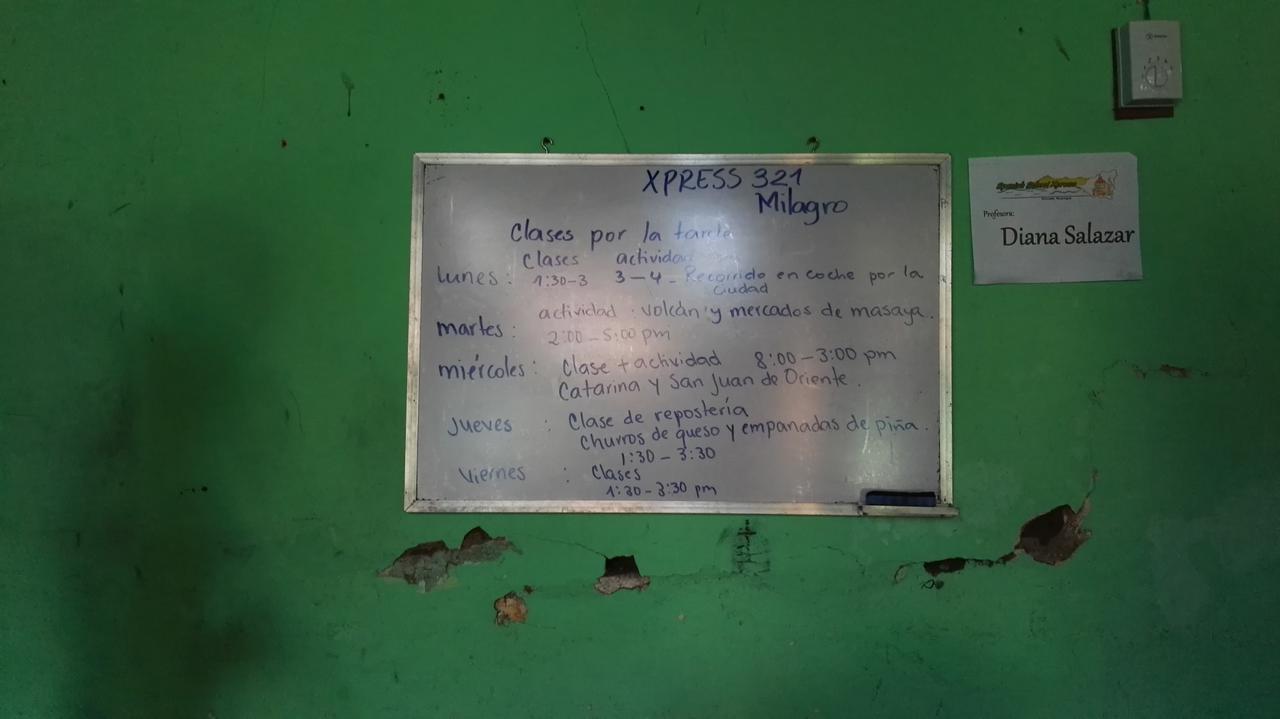 XPRESS 321
Milagro
Clases por la tarde
Clases actividad
lunes: 1:30-3 3-4 - Recorrido en coche por la
ciudad
actividad: volcán y mercados de masaya.
martes: 2:00-5:00 pm
miércoles: Clase + actividad 8:00-3:00 pm
Catarina y San Juan de Oriente.
Jueves : Clase de repostería
Churros de queso y empanadas de piña.
1:30-3:30
Viernes : Clases
1:30-3:30 pm
Spanish School Xpress
Profesora:
Diana Salazar